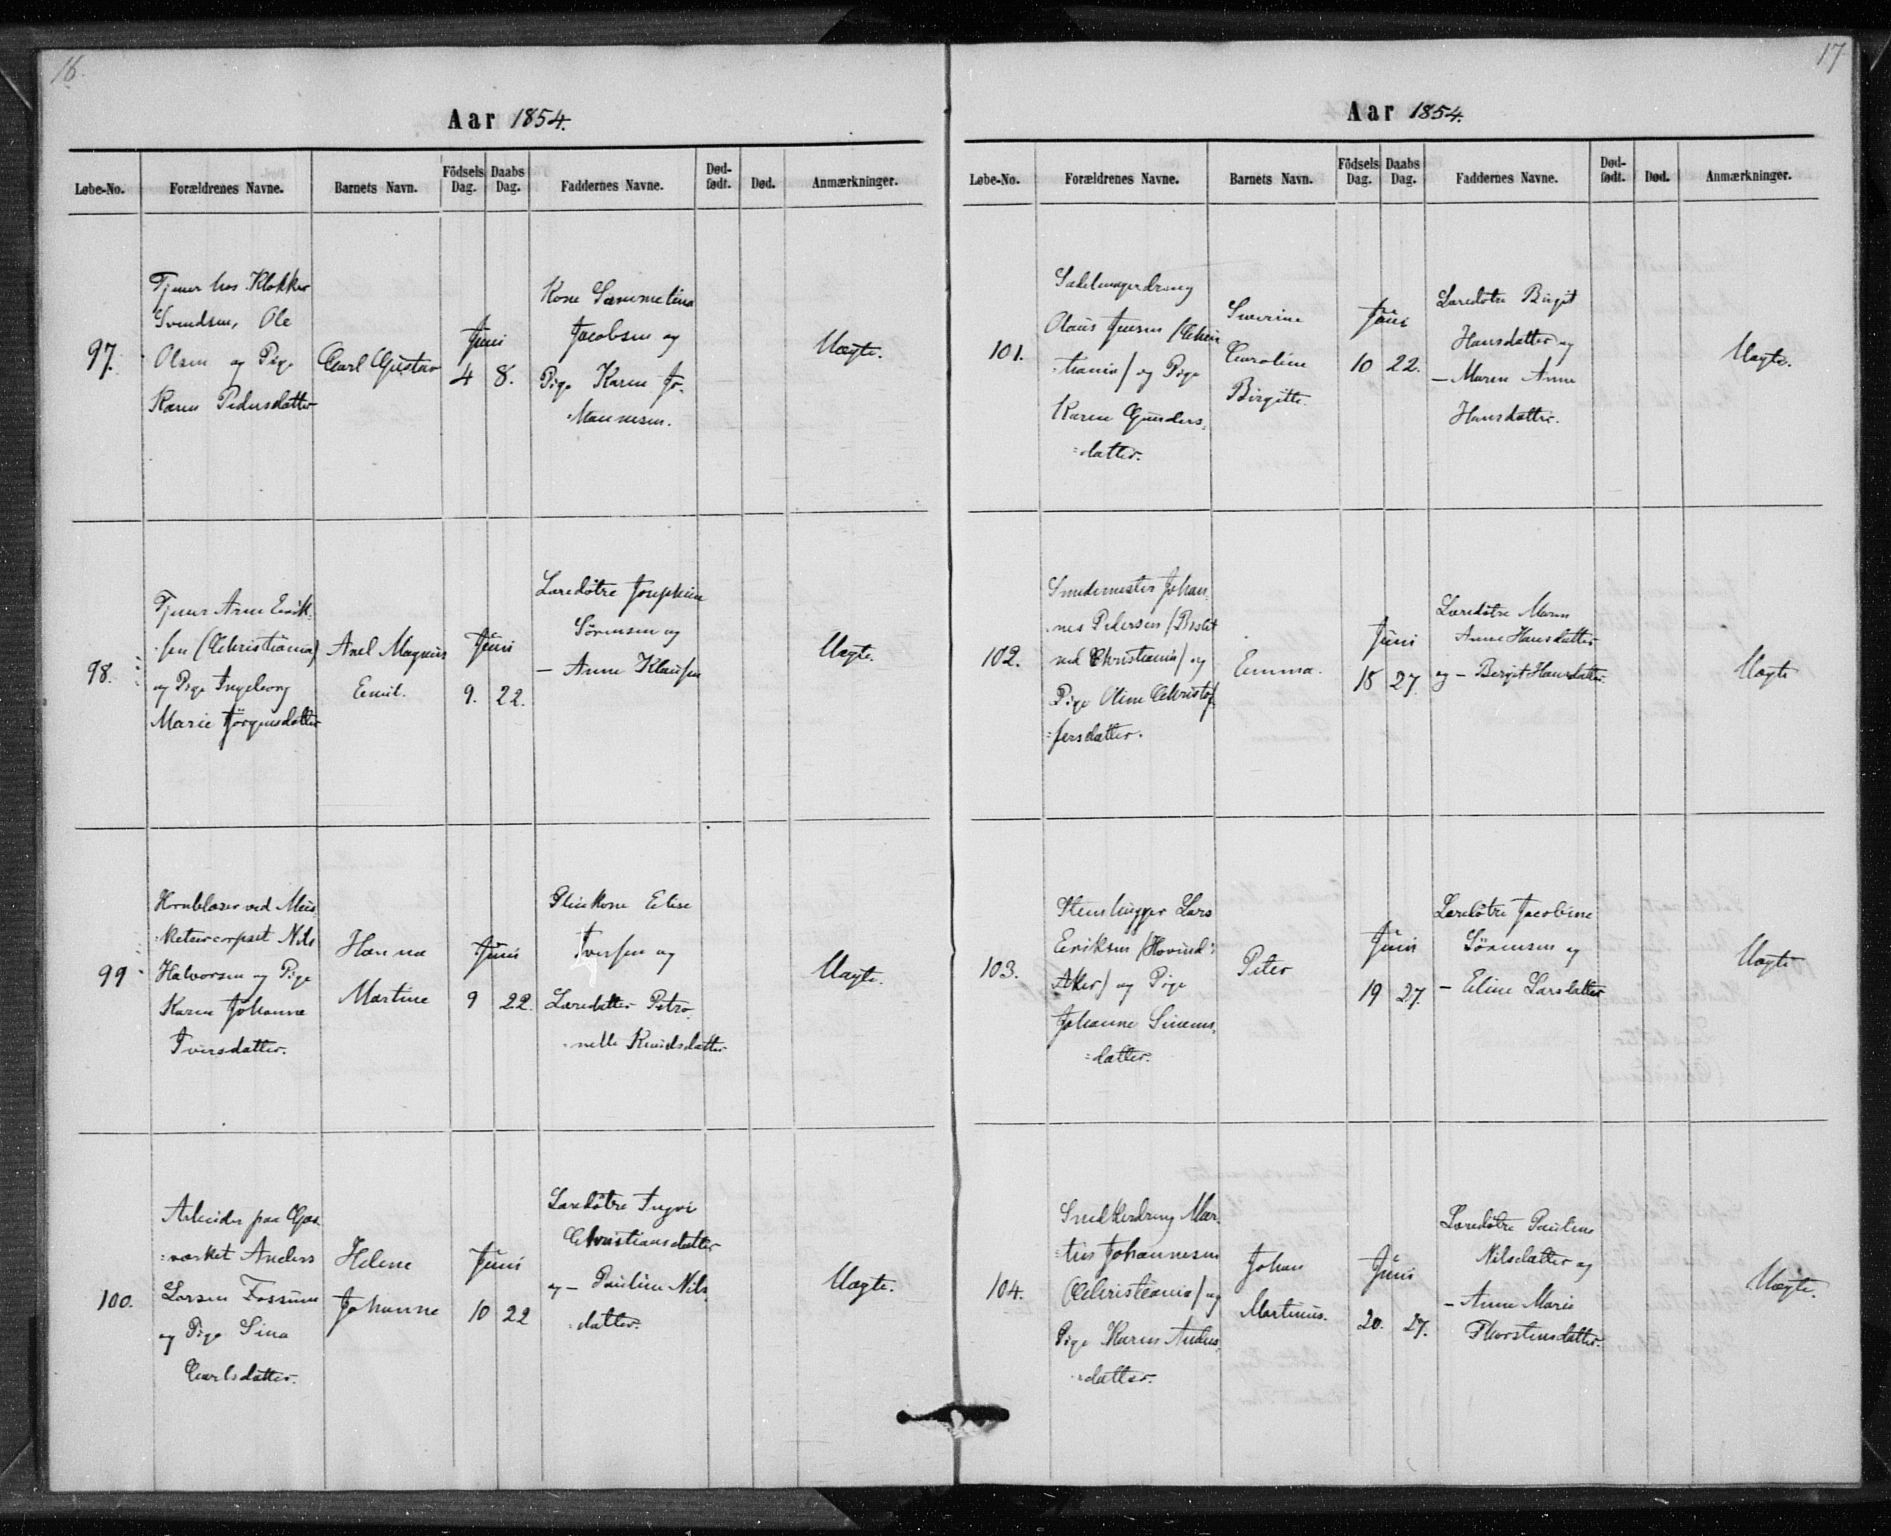 16.
Aar 1854.
Løbe-No.
Forældrenes Navne.
Barnets Navn.
Födsels Dag.
Daabs Dag.
Faddernes Navne.
Død-født.
Død.
Anmærkninger.
97.
Tjener hos Klokker
Svendsen, Ole
Olsen og Pige
Karen Pedersdatter
Carl Gustav
Juni
4
8.
Kone
Jacobsen og
Pige Karen Jo-
Uægte.
98.
Tjener Arne Erik-
sen (Christiania)
og Pige Ingeborg
Marie Jörgensdatter
Axel Magnus
Emil.
Juni
9.
22.
Laredøtre Josephine
Sørensen og
— Anne Klausen
Uægte.
99
Hornblæser ved Mus
ketercorpset Nils
Halvorsen og Pige
Karen Johanne
Iversdatter.
Hanna
Martine
Juni
9
22.
Pleiekone Elise
Iversen og
Laredatter Petro
nelle Knudsdatter
Uægte.
100.
Arbeider paa Gas
=værket Anders
Larsen Fossum
og Pige Sina
Carlsdatter.
Helene
Johanne
Juni
10
22
Laredøtre
Christiansdatter
og — Pauline Nils
datter.
Uægte.
17
Aar 1854.
Løbe-No.
Forældrenes Navne.
Barnets Navn.
Födsels Dag.
Daabs Dag.
Faddernes Navne.
Død-født.
Død.
Anmærkninger.
101.
Sadelmagerdreng
Olaus Jensen (Chris
=tiania) og Pige
Karen Gunders
=datter.
Severine
Caroline
Birgitte.
Juni
10
22.
Laredøtre Birgit
Hansdatter og
— Maren Anne
Hansdatter.
Uægte.
102.
Smedemester Johan
nes Pedersen (Beslet
ved Christiania) og
Pige Oline Christof
=fersdatter.
Emma.
Juni
18
27.
Laredøtre Maren
Anne Hansdatter
og — Bergit Hansdatter
Uægte
103.
Stenhugger Lars
Eriksen (Hovind i
Aker) og Pige
Johanne Simens
=datter.
Peter
Juni
19
27.
Laredøtre Jacobine
Sørensen og
— Eline Larsdatter
Uægte
104.
Snedkerdreng Mar
=tin Johannesen
(Christiania) og
Pige Karen Anders
datter.
Johan
Martinus.
Juni
20.
27.
Laredøtre Pauline
Nilsdatter og
— Anne Marie
Thorstensdatter.
Uægte.